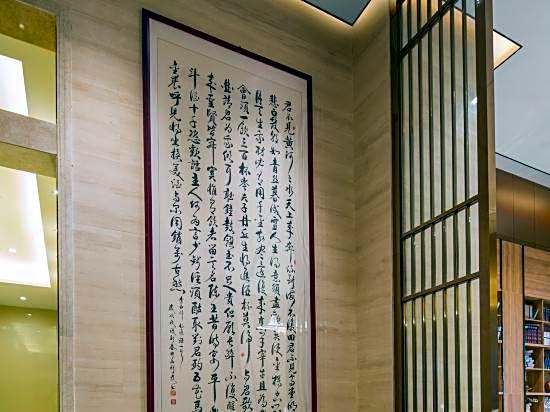 君不見黃河之水天上來奔流到海不復回君不見高堂明
悲白髮朝如青絲暮成雪人生得意須盡歡莫使金樽空對
月天生我材必有用千金散盡還復來烹羊宰牛且為
會須一飲三百杯岑夫子丹丘生將進酒杯莫停與君歌
請君為我傾耳聽鐘鼓饌玉不足貴但願長醉不復醒
來聖賢皆寂寞惟有飲者留其名陳王昔時宴平
斗酒十千恣歡謔主人何為言少錢徑須沽取對君酌五花馬
金裘呼兒將出換美酒與爾同銷萬古愁